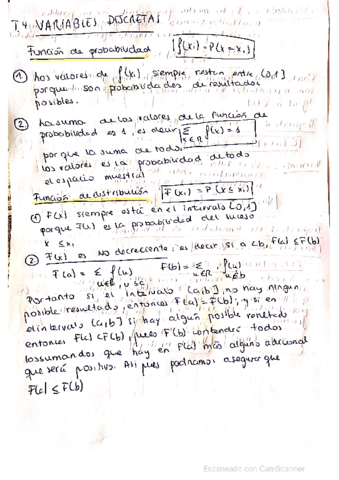 T4 VARIABLES DISCRETAS
Función de probabilidad f(xi) = P(X = xi)
① Los valores de f(xi) siempre estan entre [0,1]
porque son probabilidades de resultados
posibles.
② La suma de los valores de la función de
probabilidad es 1, es decir Σ f(x) = 1
x ∈ Ω
porque la suma de todos
los valores es la probabilidad de todo
el espacio muestral
Función de distribución F(xi) = P(X ≤ xi)
① F(x) siempre está en el intervalo [0,1]
porque F(x) es la probabilidad del suceso
x ≤ xi
② F(x) es no decreciente: es decir, si a<b, F(a) ≤ F(b)
F(a) = Σ f(u) F(b) = Σ f(u)
Por tanto si el intervalo (a,b] no hay ningun
posible resultado, entonces F(a) = F(b); y si en
el intervalo (a,b] si hay algún posible resultado
entonces F(a) < F(b), pues F(b) contendrá todos
los sumandos que hay en F(a) más alguno adicional
que será positivo. Así pues podriamos asegurar que
F(a) ≤ F(b)
Escaneado con CamScanner